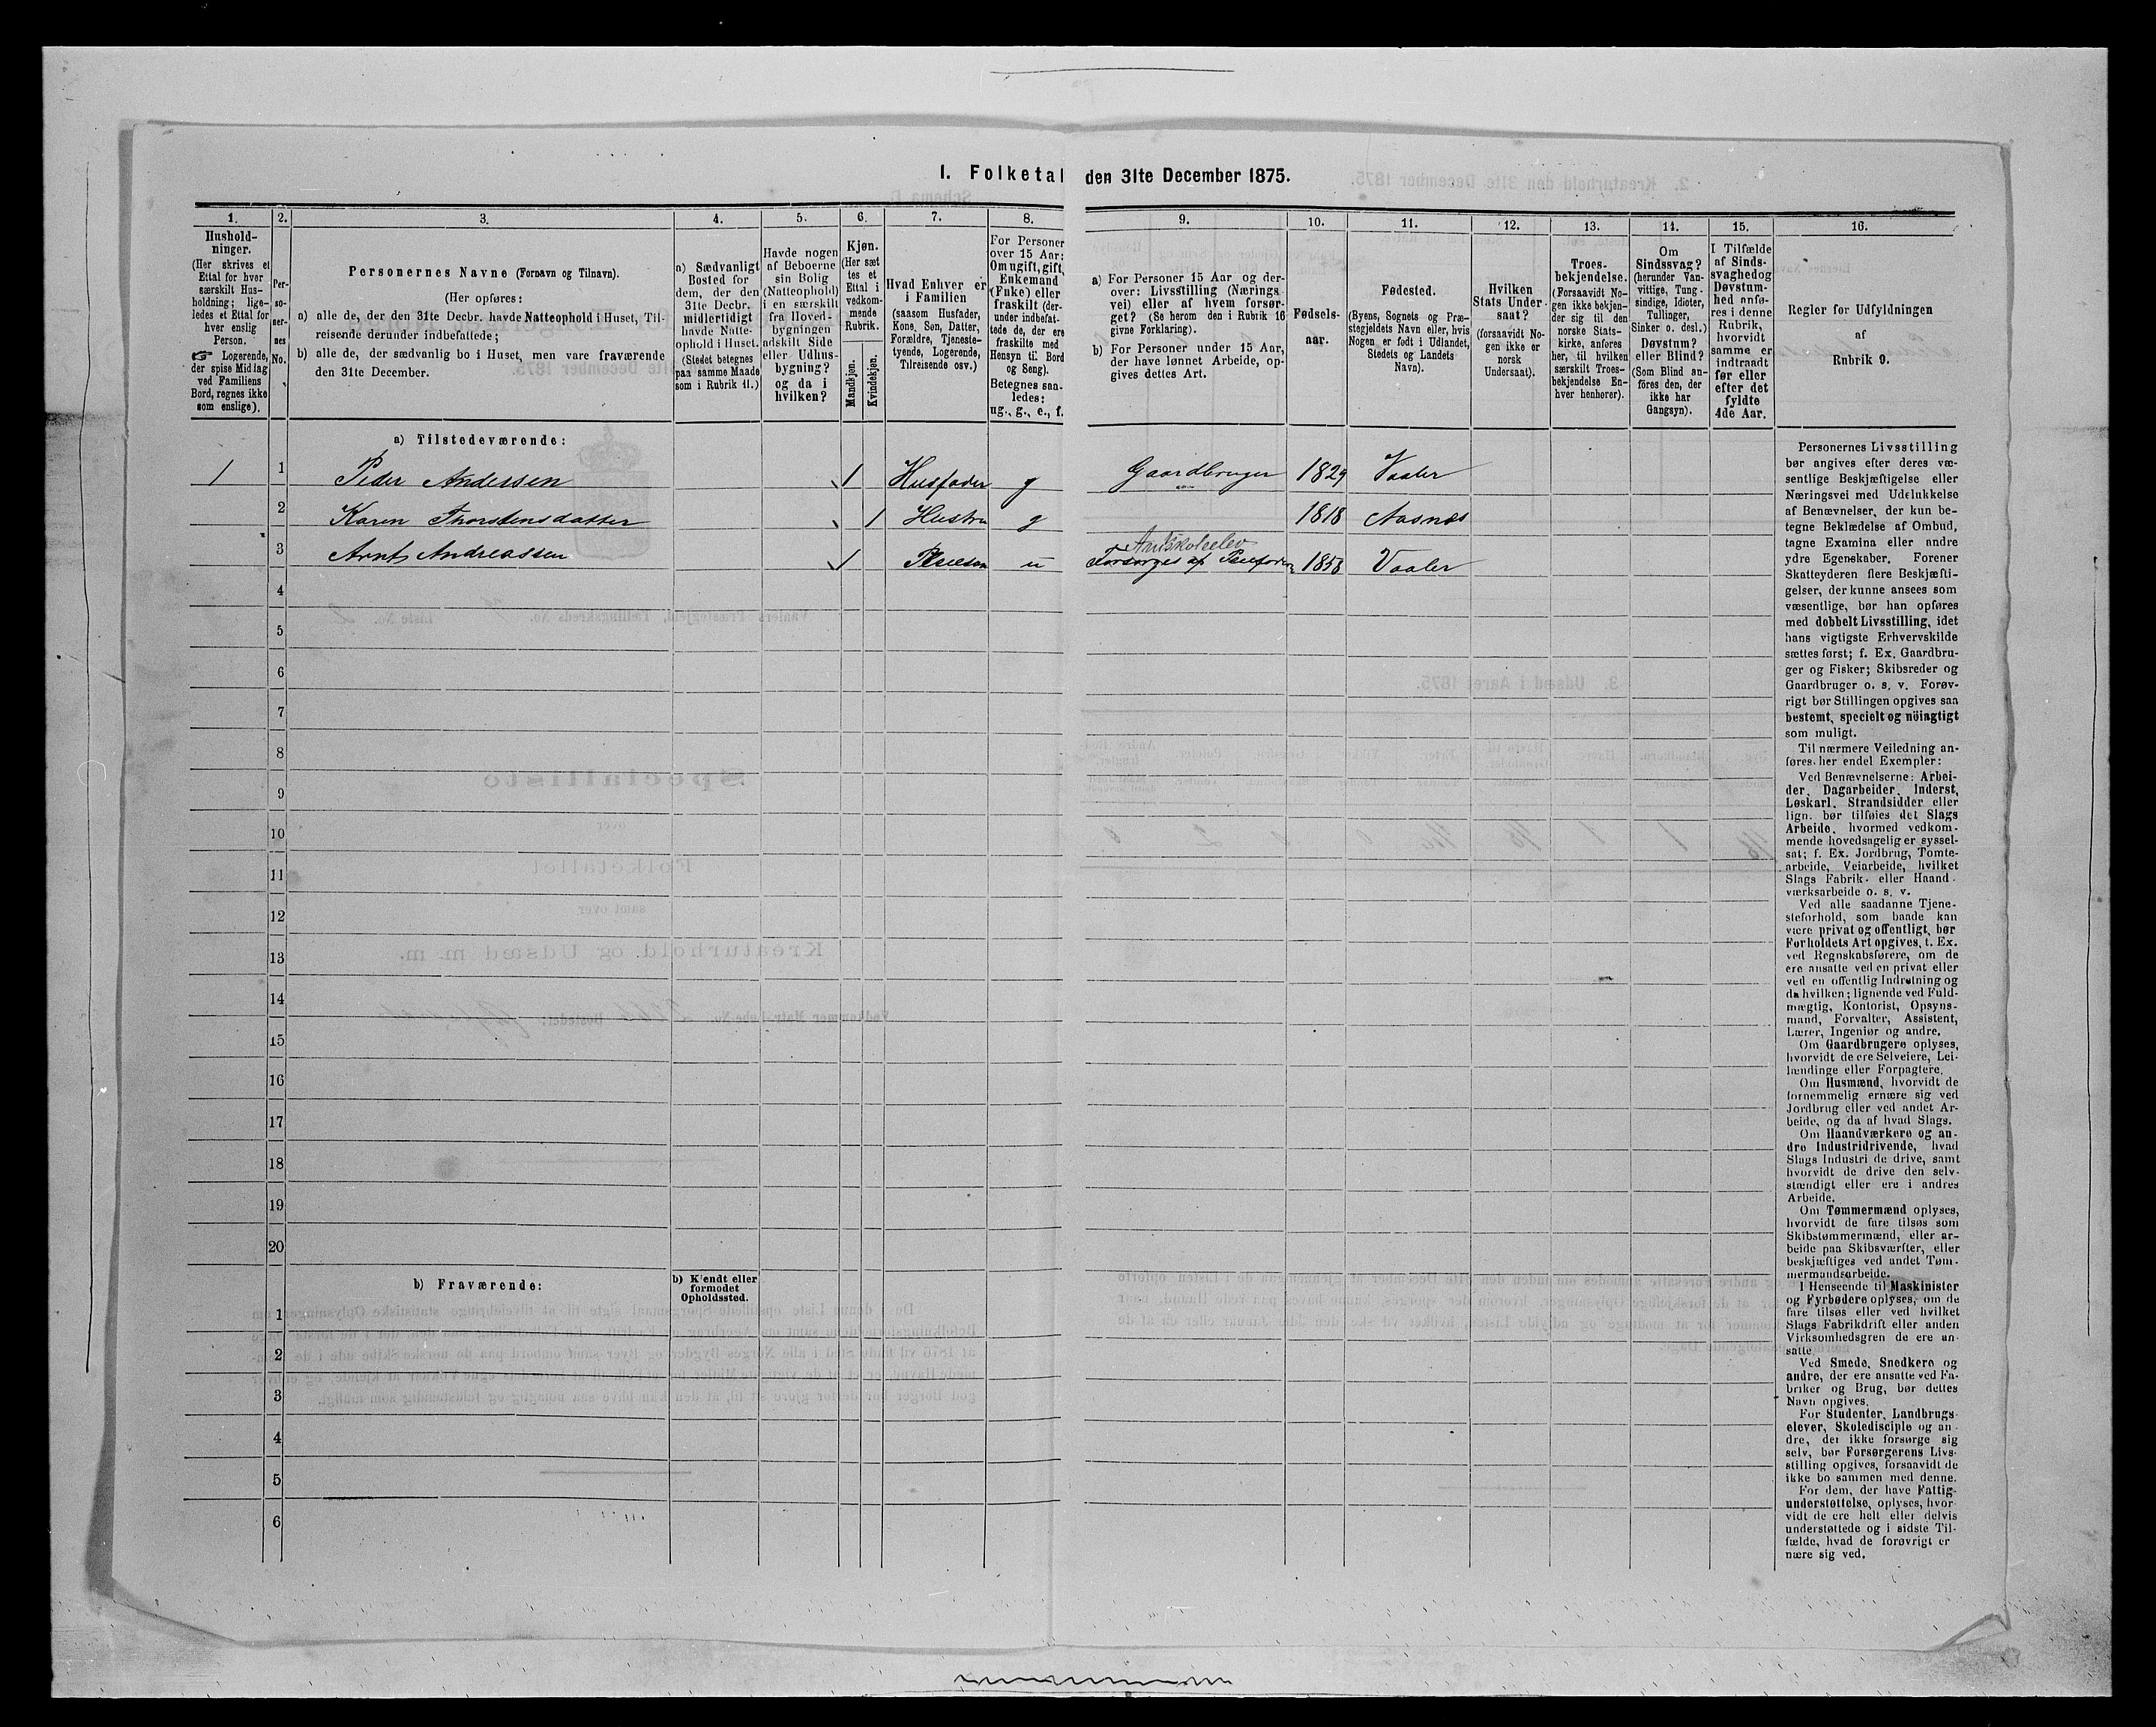 I. Folketal den 31te December 1875.
1.
2.
3.
4.
5.
6.
7.
8.
9.
10.
11.
12.
13.
14.
15.
16.
Hushold-
ninger.
(Her skrives et
Ettal for hver
særskilt Hus-
holdning; lige-
ledes et Ettal for
hver enslig
Person.
☞ Logerende,
der spise Middag
ved Familiens
Bord, regnes ikke
som enslige).
Per-
so-
ner-
nes
No.
Personernes Navne (Fornavn og Tilnavn).
(Her opføres:
a) alle de, der den 31te Decbr. havde Natteophold i Huset, Til-
reisende derunder indbefattede;
b) alle de, der sædvanlig bo i Huset, men vare fraværende
den 31te December.
a) Sædvanligt
Bosted for
dem, der den
31te Decbr.
midlertidigt
havde Natte-
ophold i Huset.
(Stedet betegnes
paa samme Maade
som i Rubrik 11.)
Havde nogen
af Beboerne
sin Bolig
(Natteophold)
i en særskilt
fra Hoved-
bygningen
adskilt Side
eller Udhus-
bygning?
og da i
hvilken?
Kjøn.
(Her sæt
tes et
Ettal i
vedkom-
mende
Rubrik.
Mandkjøn.
Kvindekjøn.
Hvad Enhver er
i Familien
(saasom Husfader,
Kone, Søn, Datter,
Forældre, Tjeneste-
tyende, Logerende,
Tilreisende osv.)
For Personer
over 15 Aar:
Om ugift, gift,
Enkemand
(Enke) eller
fraskilt (der-
under indbefat-
tede de, der ere
fraskilte med
Hensyn til Bord
og Seng).
Betegnes saa-
ledes:
ug., g., e., f.
a) For Personer 15 Aar og der-
over: Livsstilling (Nærings
vei) eller af hvem forsør-
get? (Se herom den i Rubrik 16
givne Forklaring).
b) For Personer under 15 Aar,
der have lønnet Arbeide, op-
gives dettes Art.
Fødsels-
aar.
Fødested.
(Byens, Sognets og Præ-
stegjeldets Navn eller, hvis
Nogen er født i Udlandet,
Stedets og Landets
Navn).
Hvilken
Stats Under-
saat?
(forsaavidt No-
gen ikke er
norsk
Undersaat).
Troes-
bekjendelse.
(Forsaavidt No-
gen ikke bekjen-
der sig til den
norske Stats-
kirke, anføres
her, til hvilken
særskilt Troes-
bekjendelse En-
hver henhører).
Om
Sindssvag?
(herunder Van-
vittige, Tung-
sindige, Idioter,
Tullinger,
Sinker o. desl.)
Døvstum?
eller Blind?
(Som Blind an-
føres den, der
ikke har
Gangsyn).
I Tilfælde
af Sinds-
svaghed og
Døvstum-
hed anfø-
res i denne
Rubrik,
hvorvidt
samme er
indtraadt
før eller
efter det
fyldte
4de Aar.
Regler for Udfyldningen
af
Rubrik 9.
a) Tilstedeværende:
1 1 Peder Andersen 1 Husfader g Gaardbruger 1829 Vaaler
2 Karen Thorstensdatter 1 Hustru g 1818 Aasnæs
Amtskoleelev
3 Arnt Andreassen 1 Pleiesøn u Forsørges af Pleiefaderen 1858 Vaaler
4
5
6
7
8
9
10
11
12
13
14
15
16
17
18
19
20
b) Fraværende:
b) Kjendt eller
formodet
Opholdssted.
1
2
3
4
5
6
Personernes Livsstilling
bør angives efter deres væ-
sentlige Beskjæftigelse eller
Næringsvei med Udelukkelse
af Benævnelser, der kun be-
tegne Beklædelse af Ombud,
tagne Examina eller andre
ydre Egenskaber. Forener
Skatteyderen flere Beskjæfti-
gelser, der kunne ansees som
væsentlige, bør han opføres
med dobbelt Livsstilling, idet
hans vigtigste Erhvervskilde
sættes først; f. Ex. Gaardbru-
ger og Fisker; Skibsreder og
Gaardbruger o. s. v. Forøv-
rigt bør Stillingen opgives saa
bestemt, specielt og nöiagtigt
som muligt.
Til nærmere Veiledning an-
føres her endel Exempler:
Ved Benævnelserne: Arbei-
der, Dagarbeider, Inderst,
Løskarl, Strandsidder eller
lign. bør tilføies det Slags
Arbeide, hvormed vedkom-
mende hovedsagelig er syssel-
sat; f. Ex. Jordbrug, Tomte-
arbeide, Veiarbeide, hvilket
Slags Fabrik- eller Haand-
værksarbeide o. s. v.
Ved alle saadanne Tjene-
steforhold, som baade kan
være privat og offentligt, bør
Forholdets Art opgives, t. Ex.
ved Regnskabsførere, om de
ere ansatte ved en privat eller
ved en offentlig Indretning og
da hvilken; lignende ved Fuld-
mægtig, Kontorist, Opsyns-
mand, Forvalter, Assistent,
Lærer, Ingeniør og andre.
Om Gaardbrugere oplyses,
hvorvidt de ere Selveiere, Lei-
lændinge eller Forpagtere.
Om Husmænd, hvorvidt de
fornemmelig ernære sig ved
Jordbrug eller ved andet Ar-
beide, og da af hvad Slags.
Om Haandværkere og an-
dre Industridrivende, hvad
Slags Industri de drive, samt
hvorvidt de drive den selv-
stændigt eller ere i andres
Arbeide.
Om Tømmermænd oplyses,
hvorvidt de fare tilsøs som
Skibstømmermænd, eller ar-
beide paa Skibsværfter, eller
beskjæftiges ved andet Tøm-
mermandsarbeide.
I Henseende til Maskinister
og Fyrbødere oplyses, om de
fare tilsøs eller ved hvilket
Slags Fabrikdrift eller anden
Virksomhedsgren de ere an-
satte
Ved Smede, Snedkere og
andre, der ere ansatte ved Fa-
briker og Brug, bør dettes
Navn opgives.
For Studenter, Landbrugs-
elever, Skoledisciple og an-
dre, der ikke forsørge sig
selv, bør Forsørgerens Livs-
stilling opgives, forsaavidt de
ikke bo sammen med denne.
For dem, der have Fattig-
understøttelse, oplyses, hvor-
vidt de ere helt eller delvis
understøttede og i sidste Til-
fælde, hvad de forøvrigt er
nære sig ved.